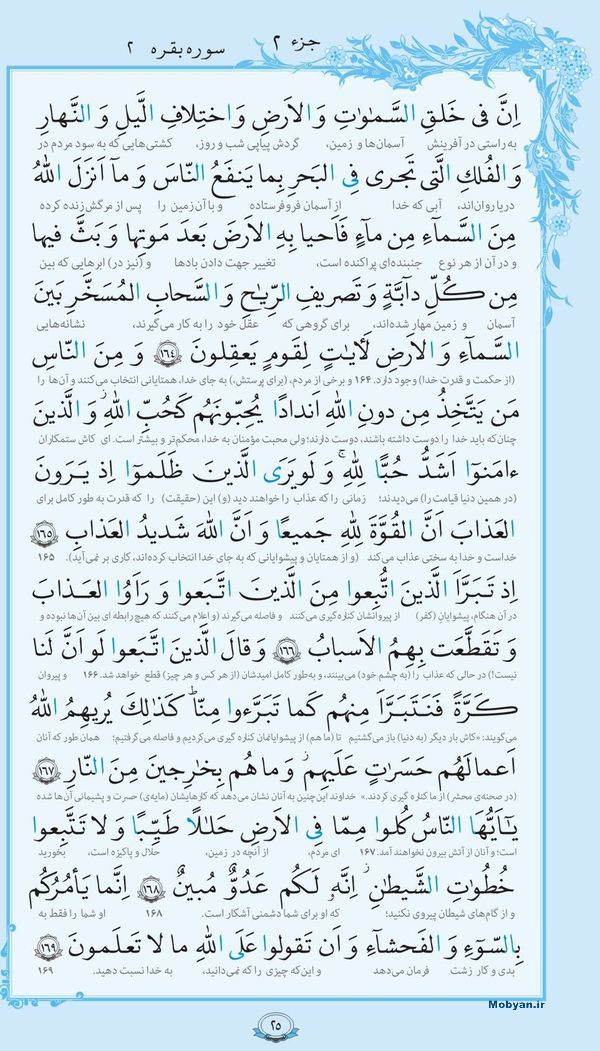 جزء ۲
سوره بقره ۲
اِنَّ فی خَلقِ السَّمٰوٰتِ وَ الاَرضِ وَ اختِلافِ الَّیلِ وَ النَّهارِ
به راستی در آفرینش آسمان‌ها و زمین، گردش پیاپی شب و روز، کشتی‌هایی که به سود مردم در
وَ الفُلکِ الَّتی تَجری فِی البَحرِ بِما یَنفَعُ النّاسَ وَ مآ اَنزَلَ اللهُ
دریا روان‌اند، آبی که خدا از آسمان فرو فرستاده و با آن زمین را پس از مرگش زنده کرده
مِنَ السَّمآءِ مِن مآءٍ فَاَحیا بِهِ الاَرضَ بَعدَ مَوتِها وَ بَثَّ فیها
و در آن از هر نوع جنبنده‌ای پراکنده است، تغییر جهت دادن بادها و (نیز در) ابرهایی که بین
مِن کُلِّ دآبَّةٍ وَ تَصریفِ الرِّیٰحِ وَ السَّحابِ المُسَخَّرِ بَینَ
آسمان و زمین مهار شده‌اند، برای گروهی که عقل خود را به کار می‌گیرند، نشانه‌هایی
السَّمآءِ وَ الاَرضِ لَأٓیٰتٍ لِقَومٍ یَعقِلونَ ﴿۱۶۴﴾ وَ مِنَ النّاسِ
(از حکمت و قدرت خدا) وجود دارد. ۱۶۴ و برخی از مردم، (برای پرستش،) به جای خدا، همتایانی انتخاب می‌کنند و آن‌ها را
مَن یَتَّخِذُ مِن دونِ اللهِ اَندادًا یُحِبّونَهُم کَحُبِّ اللهِ ۖ وَ الَّذینَ
چنان‌که باید خدا را دوست داشته باشند، دوست دارند؛ ولی محبت مؤمنان به خدا، محکم‌تر و بیشتر است. ای کاش ستمکاران
ءامَنوٓا اَشَدُّ حُبًّا لِلّٰهِ ۗ وَ لَو یَرَی الَّذینَ ظَلَموٓا اِذ یَرَونَ
(در همین دنیا قیامت را) می‌دیدند؛ زمانی را که عذاب را خواهند دید (و) این (حقیقت) را که قدرت به طور کامل برای
العَذابَ اَنَّ القُوَّةَ لِلّٰهِ جَمیعًا وَ اَنَّ اللهَ شَدیدُ العَذابِ ﴿۱۶۵﴾
خداست و خدا به سختی عذاب می‌کند (و از همتایان و پیشوایانی که به جای خدا انتخاب کرده‌اند، کاری بر نمی‌آید). ۱۶۵
اِذ تَبَرَّاَ الَّذینَ اتُّبِعوا مِنَ الَّذینَ اتَّبَعوا وَ رَاَوُا العَذابَ
در آن هنگام، پیشوایانِ (کفر) از پیروانشان کناره‌گیری می‌کنند و فاصله می‌گیرند (و اعلام می‌کنند که هیچ رابطه‌ای بین آن‌ها نبوده و
وَ تَقَطَّعَت بِهِمُ الاَسبابُ ﴿۱۶۶﴾ وَ قالَ الَّذینَ اتَّبَعوا لَو اَنَّ لَنا
نیست!) در حالی که عذاب را (به چشم خود) می‌بینند، و به‌طور کامل امیدشان (از هر کس و هر چیز) قطع خواهد شد. ۱۶۶ و پیروان
کَرَّةً فَنَتَبَرَّاَ مِنهُم کَما تَبَرَّءوا مِنّا ۗ کَذٰلِکَ یُریهِمُ اللهُ
می‌گویند: «کاش بار دیگر (به دنیا) باز می‌گشتیم تا (ما هم) از پیشوایانمان کناره گیری می‌کردیم و فاصله می‌گرفتیم؛ همان طور که آنان
اَعمالَهُم حَسَرٰتٍ عَلَیهِم ۖ وَ ما هُم بِخٰرِجینَ مِنَ النّارِ ﴿۱۶۷﴾
(در صحنه‌ی محشر) از ما کناره گیری کردند.» خداوند این‌چنین به آنان نشان می‌دهد که کارهایشان (مایه‌ی) حسرت و پشیمانی آن‌ها شده
یٰٓاَیُّهَا النّاسُ کُلوا مِمّا فِی الاَرضِ حَلٰلًا طَیِّبًا وَ لا تَتَّبِعوا
است؛ و آنان از آتش بیرون نخواهند آمد. ۱۶۷ ای مردم، از آنچه در زمین، حلال و پاکیزه است، بخورید
خُطُوٰتِ الشَّیطٰنِ ۚ اِنَّهٗ لَکُم عَدُوٌّ مُبینٌ ﴿۱۶۸﴾ اِنَّما یَأمُرُکُم
و از گام‌های شیطان پیروی نکنید؛ که او برای شما دشمنی آشکار است. ۱۶۸ او شما را فقط به
بِالسّوٓءِ وَ الفَحشآءِ وَ اَن تَقولوا عَلَی اللهِ ما لا تَعلَمونَ ﴿۱۶۹﴾
بدی و کار زشت فرمان می‌دهد و این‌که چیزی را که نمی‌دانید، به خدا نسبت دهید. ۱۶۹
Mobyan.ir
۲۵